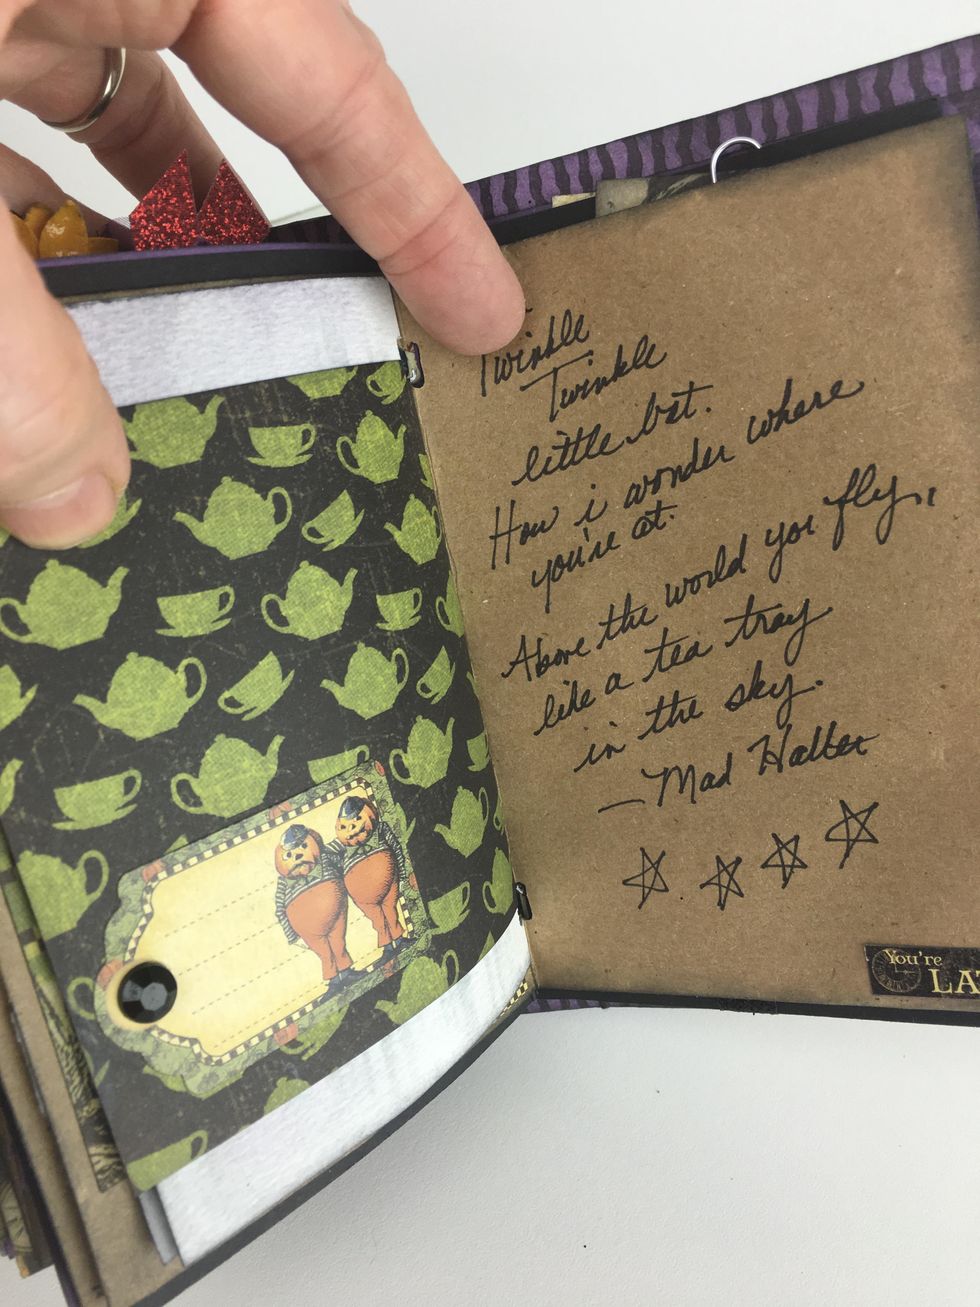 Twinkle
Twinkle
little bat.
How i wonder where
you're at.
Above the world you fly,
like a tea tray
in the sky.
—Mad Hatter
You're
LA